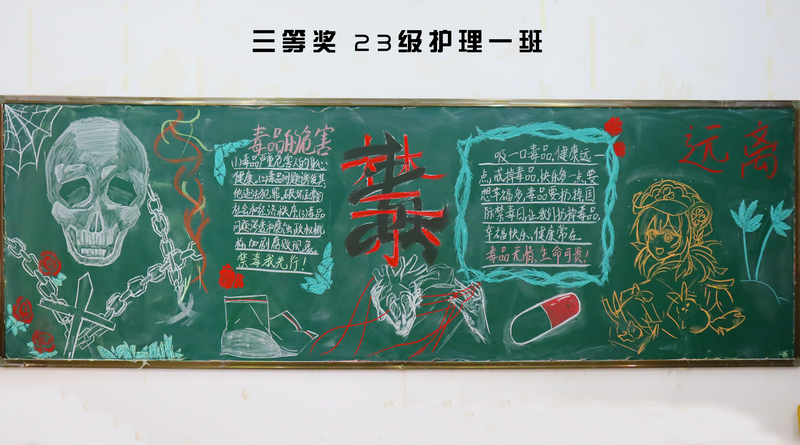 三等奖 23级护理一班
毒品的危害
(1)毒品严重危害人的身心
健康,(2)毒品问题诱发其
他违法犯罪,破坏正常的
社会和经济秩序,(3)毒品
问题渗透和腐蚀政权机
构,加剧腐败现象.
禁毒我先行!
禁毒
吸一口毒品,健康远一
点,戒掉毒品,快乐多一点,要
想幸福多,毒品要扔掉,国
际禁毒日,让我们扔掉毒品,
幸福快乐、健康常在.
毒品无情,生命可贵!
远离